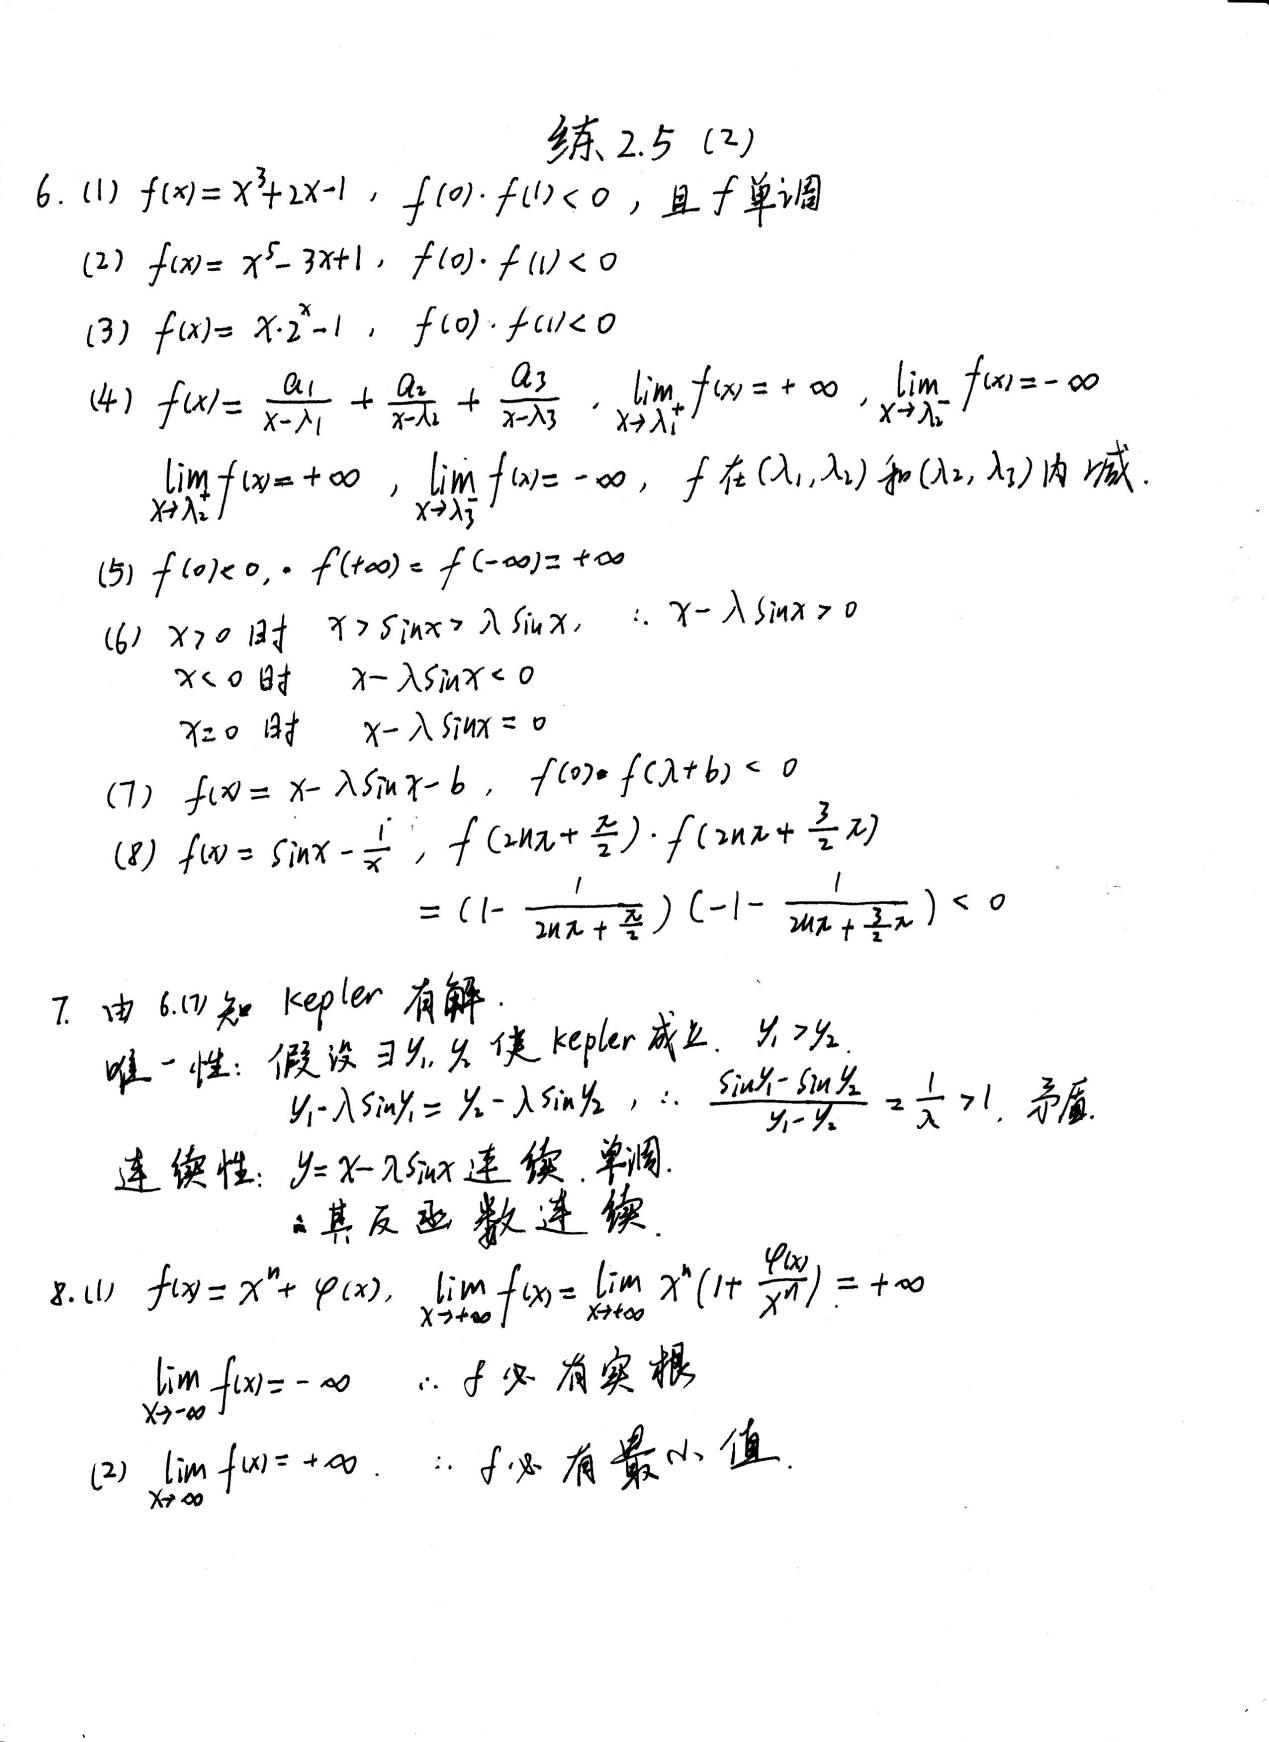 练 2.5 (2)
6. (1) f(x) = x³+2x-1, f(0)·f(1)<0, 且 f 单调
(2) f(x) = x⁵-3x+1, f(0)·f(1)<0
(3) f(x) = x·2ˣ-1, f(0)·f(1)<0
(4) f(x) = a₁/(x-λ₁) + a₂/(x-λ₂) + a₃/(x-λ₃), lim_{x→λ₁⁺} f(x) = +∞, lim_{x→λ₂⁻} f(x) = -∞
lim_{x→λ₂⁺} f(x) = +∞, lim_{x→λ₃⁻} f(x) = -∞, f 在(λ₁,λ₂)和(λ₂,λ₃)内减.
(5) f(0)<0, f(+∞) = f(-∞) = +∞
(6) x>0时 x>sinx>λsinx, ∴ x-λsinx>0
x<0时 x-λsinx<0
x=0时 x-λsinx=0
(7) f(x) = x-λsinx-b, f(0)·f(λ+b)<0
(8) f(x) = sinx - 1/x, f(2nπ+π/2)·f(2nπ+3/2π)
= (1- 1/(2nπ+π/2)) (-1- 1/(2nπ+3/2π)) < 0
7. 由 6.(7)知 Kepler 有解.
唯一性: 假设∃y₁, y₂ 使 Kepler 成立. y₁>y₂.
y₁-λsiny₁ = y₂-λsiny₂, ∴ (siny₁-siny₂)/(y₁-y₂) = 1/λ >1. 矛盾.
连续性: y=x-λsinx 连续. 单调.
∴其反函数连续.
8. (1) f(x) = xⁿ+φ(x), lim_{x→+∞} f(x) = lim_{x→+∞} xⁿ(1+ φ(x)/xⁿ) = +∞
lim_{x→-∞} f(x) = -∞ ∴ f 必有实根
(2) lim_{x→∞} f(x) = +∞. ∴ f必有最小值.